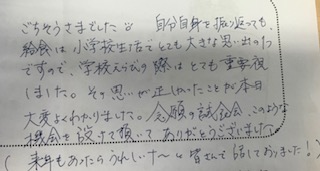 ごちそうさまでした 自分自身を振り返っても、
給食は小学校生活でとても大きな思い出のわ
ですので、学校えらびの際はとても重要視
しました。その思いが正しかったことが本日
大変よくわかりました。念願の試食会、このような
機会を設けて頂いてありがとうございました。
(来年もあったらうれしいナ〜と皆さんで話しておりました!)